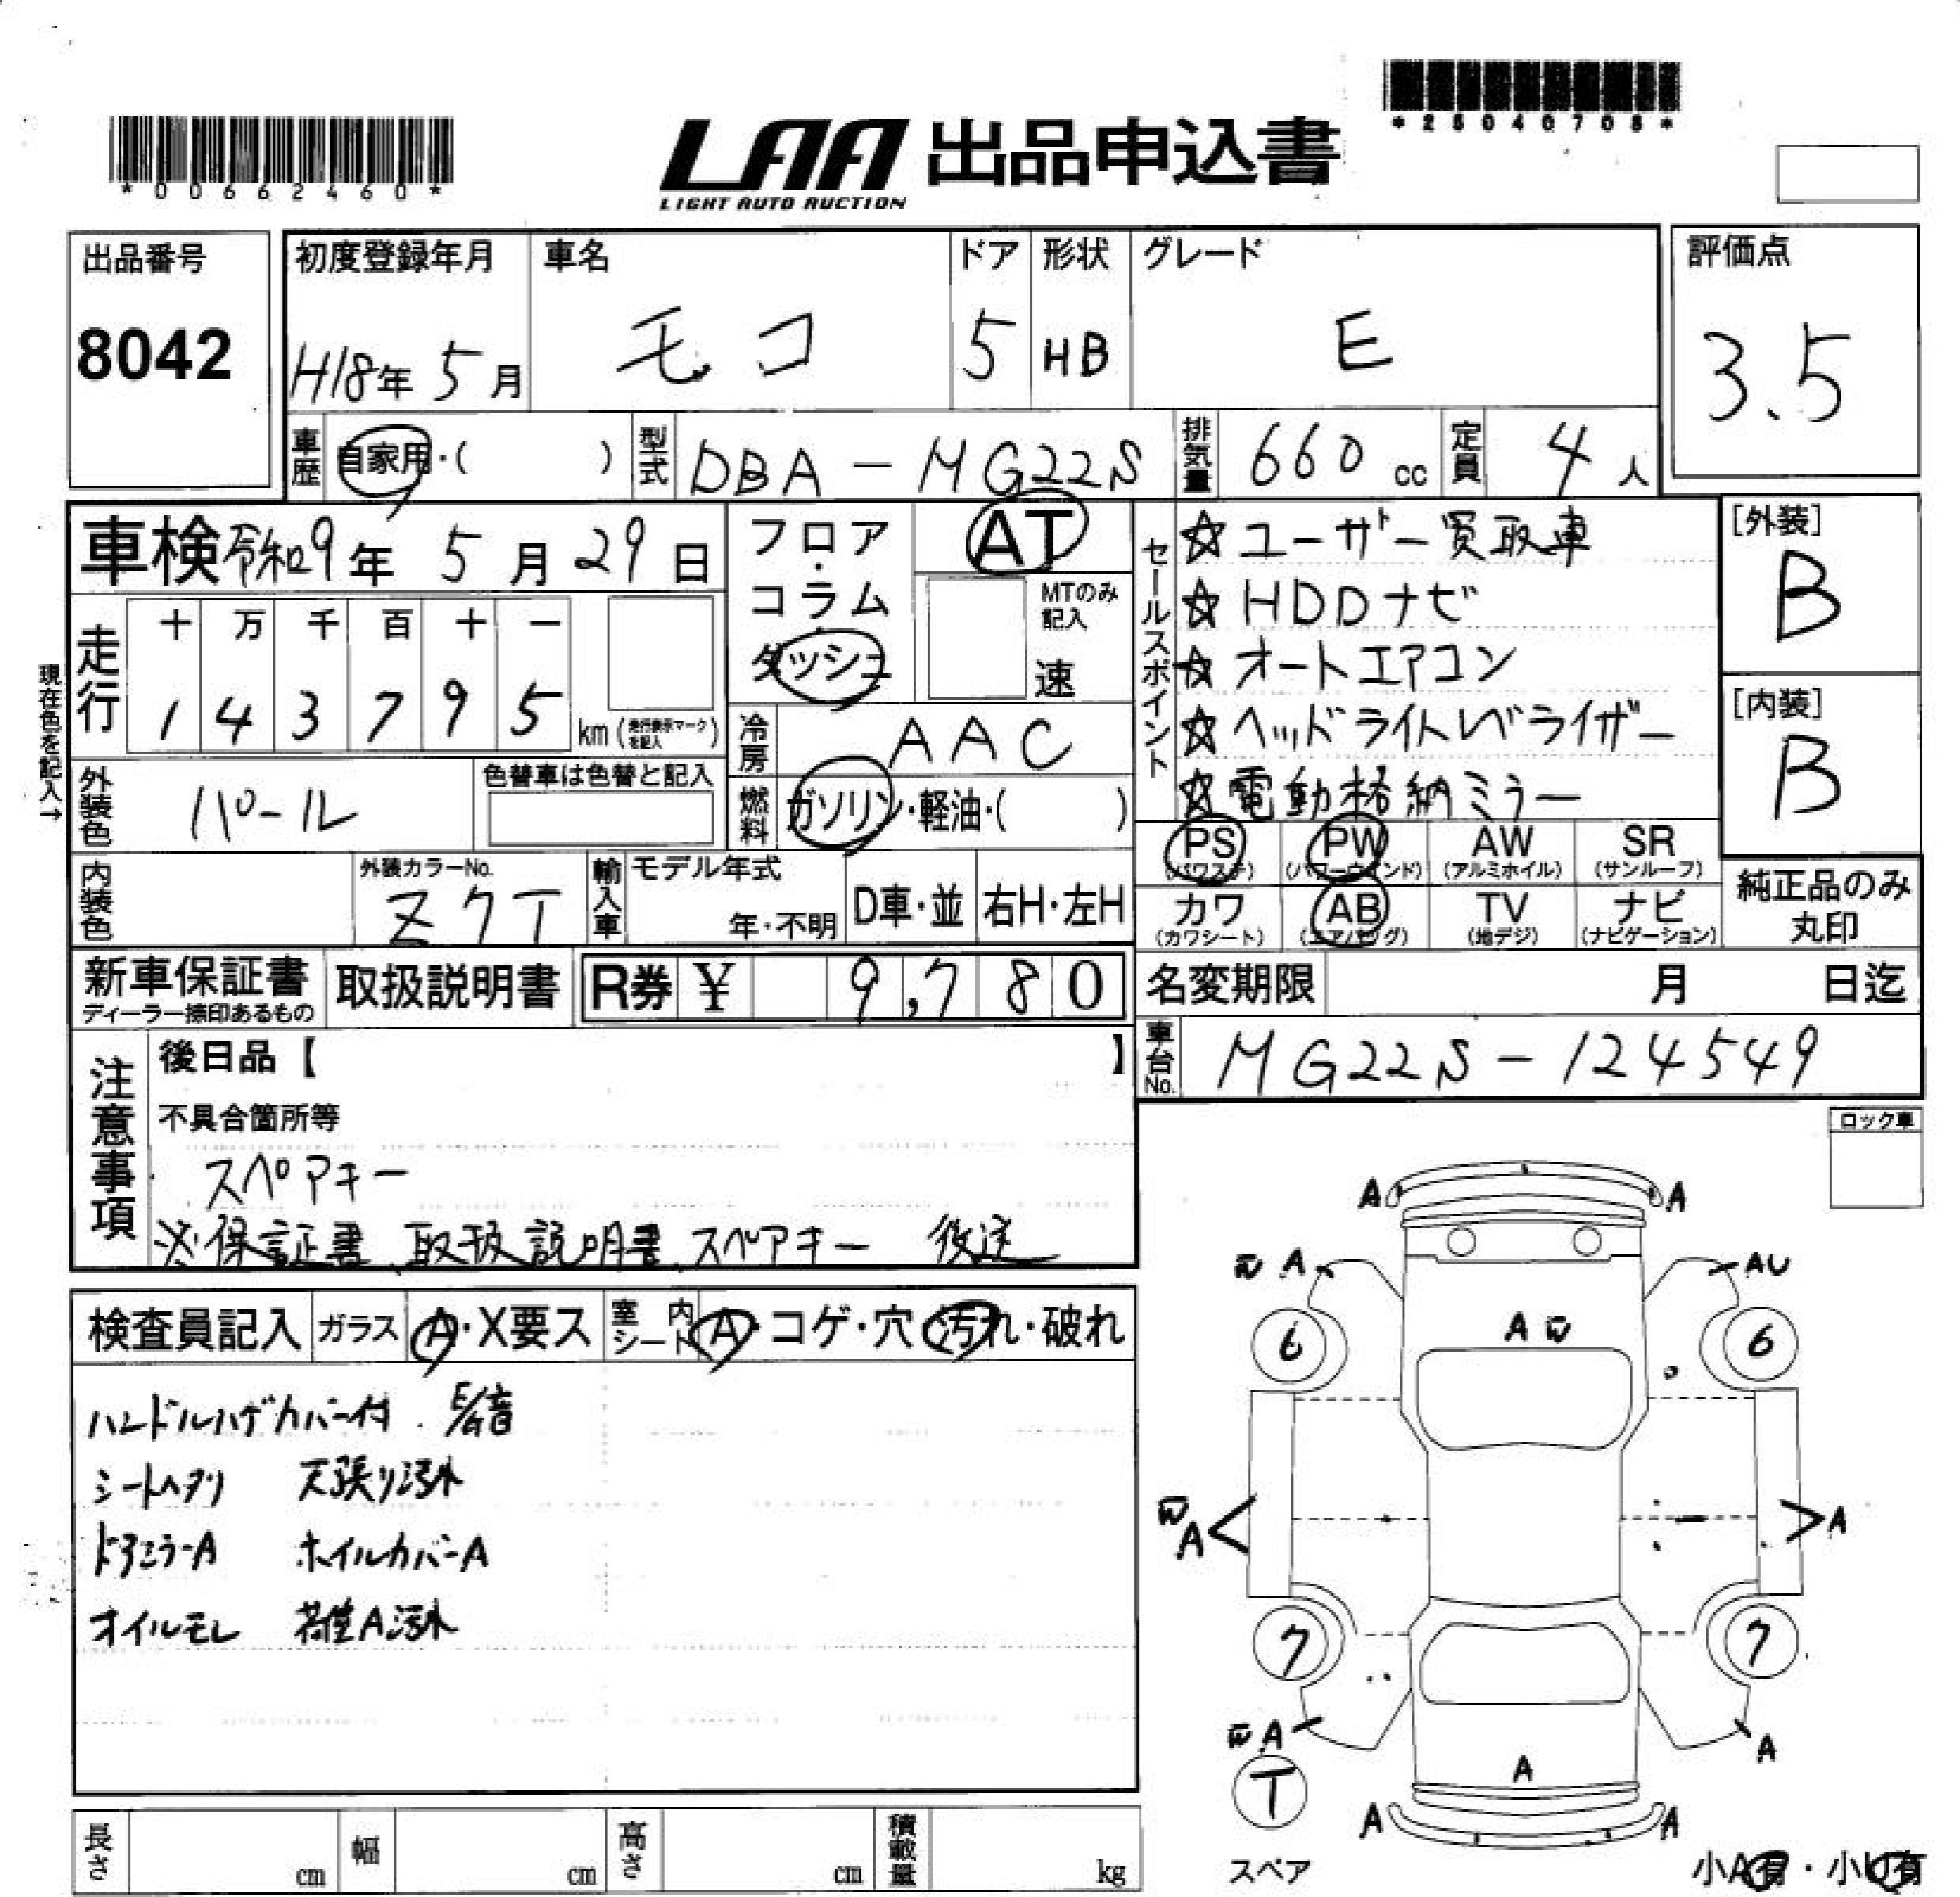 *00662460*
LAA 出品申込書
LIGHT AUTO AUCTION
*25040708*
出品番号
8042
初度登録年月 車名 ドア 形状 グレード
H18年 5月 モコ 5 HB E
評価点
3.5
車歴 自家用・( ) 型式 DBA-MG22S 排気量 660 cc 定員 4 人
車検 令和9年 5月 29日
フロア・コラム・ダッシュ
AT
MTのみ記入
速
現在色を記入→
走行 十 万 千 百 十 一
1 4 3 7 9 5 km (走行表示マークを記入)
冷房 AAC
外装色 パール
色替車は色替と記入
燃料 ガソリン・軽油・( )
内装色
外装カラーNo.
ZQT
輸入車 モデル年式
年・不明 D車・並 右H・左H
セールスポイント
☆ユーザー買取車
☆HDDナビ
☆オートエアコン
☆ヘッドライトレベライザー
☆電動格納ミラー
[外装]
B
[内装]
B
PS (パワステ) PW (パワーウインド) AW (アルミホイル) SR (サンルーフ)
カワ (カワシート) AB (エアバッグ) TV (地デジ) ナビ (ナビゲーション)
純正品のみ丸印
新車保証書 取扱説明書 R券 ¥ 9,780
ディーラー捺印あるもの
名変期限 月 日迄
車台No. MG22S-124549
注意事項
後日品【 】
不具合箇所等
スペアキー
※保証書、取扱説明書、スペアキー 後送
ロック車
検査員記入 ガラス A・X要ス 室内シート A・コゲ・穴・汚れ・破れ
ハンドルハゲカバー付. E/G音
シートヘタリ 天張り汚れ
ドアミラーA ホイルカバーA
オイルモレ 荷室A汚れ
A A
A AU
6 A 6
A A
7 7
A A
T A
A A
スペア
小A有・小U有
長さ cm 幅 cm 高さ cm 積載量 kg